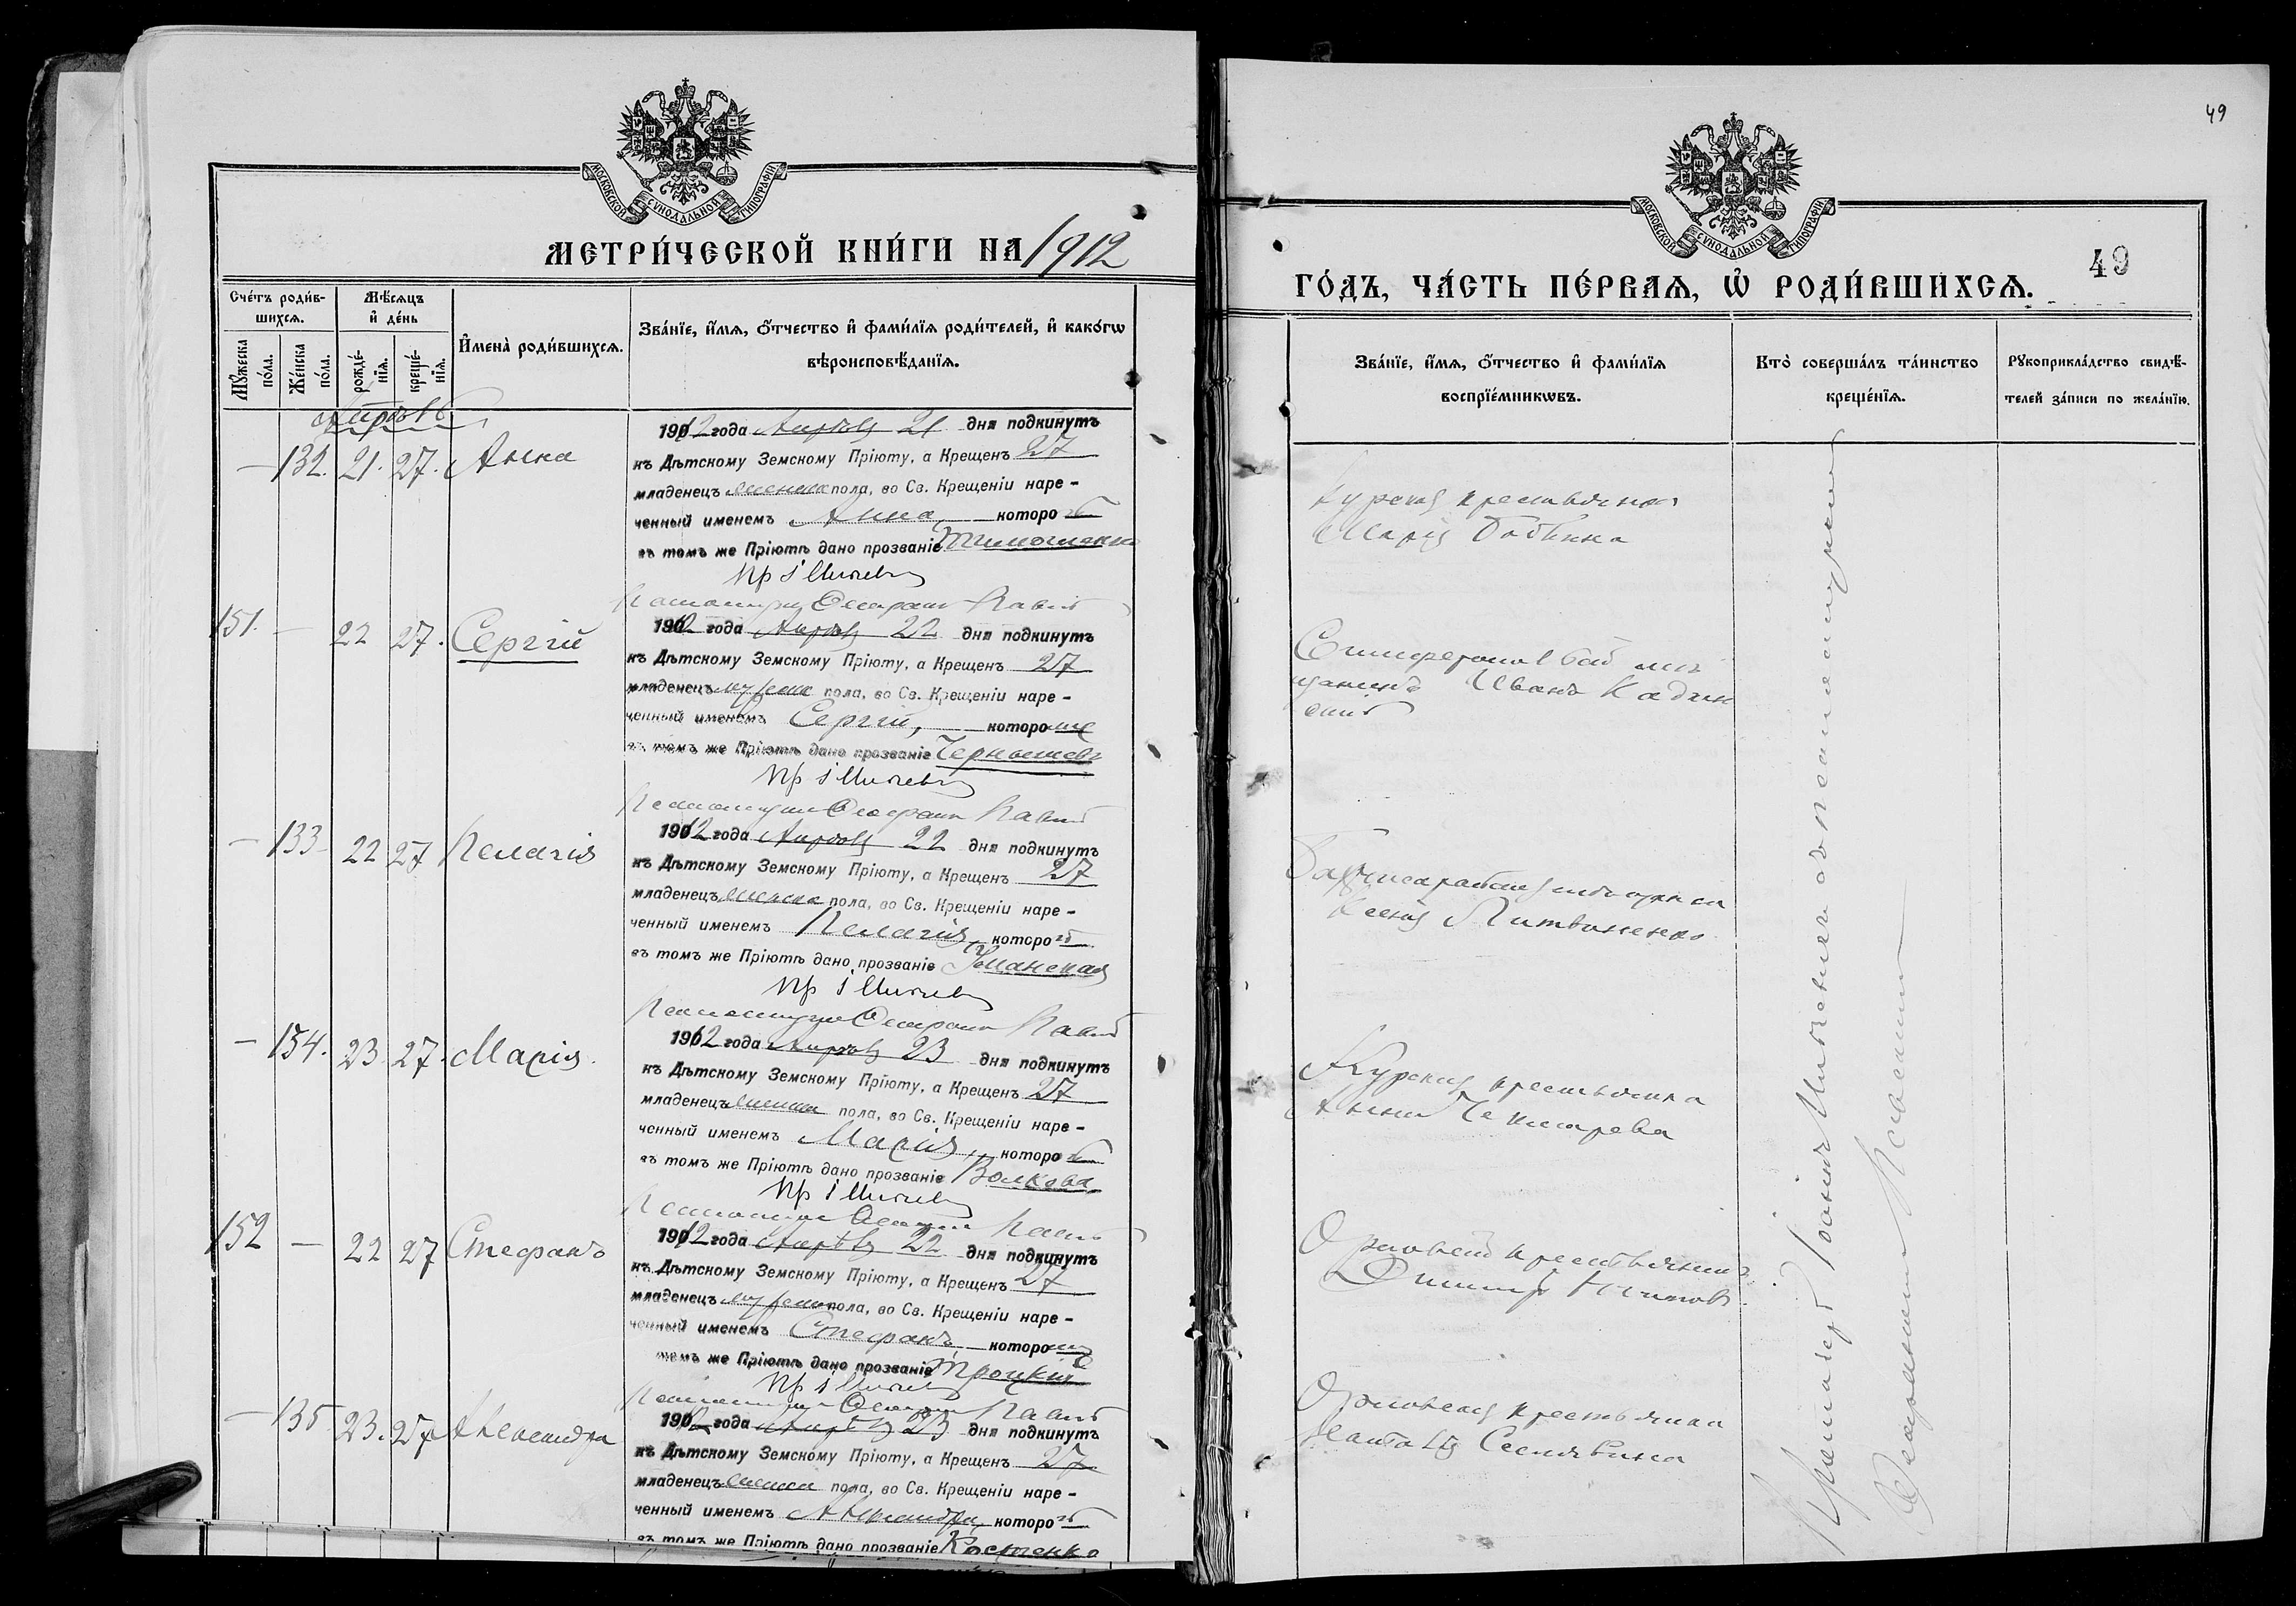 МОСКОВСКОЙ СУНОДАЛЬНОЙ ТИПОГРАФІИ
МЕТРИ́ЧЕСКОЙ КНИ́ГИ НА 1912
Сче́тъ роди́в-
шихсѧ.
Мѣ́сѧцъ
и҆ де́нь
И҆мена̀ роди́вшихсѧ.
Зва́нїе, и҆́мѧ, ѻ҆́тчество и҆ фами́лїѧ роди́телей, и҆ како́гѡ
вѣроисповѣ́данїѧ.
Мꙋ́жеска
по́ла.
Же́нска
по́ла.
рожде́-
нїѧ.
креще́-
нїѧ.
Апрѣль
— 132. 21. 27. Анна
1912 года Апрѣля 21 дня подкинутъ
къ Дѣтскому Земскому Пріюту, а Крещенъ 27
младенецъ женска пола, во Св. Крещеніи наре -
ченный именемъ Анна, которой
въ томъ же Пріютѣ дано прозваніе Тимошенко
Пр І Мигаевъ
151. — 22 27. Сергій
1912 года Апрѣля 22 дня подкинутъ
къ Дѣтскому Земскому Пріюту, а Крещенъ 27
младенецъ мужска пола, во Св. Крещеніи наре -
ченный именемъ Сергій, которому
въ томъ же Пріютѣ дано прозваніе Чернышевъ
— 133 22 27 Пелагія
1912 года Апрѣля 22 дня подкинутъ
къ Дѣтскому Земскому Пріюту, а Крещенъ 27
младенецъ женска пола, во Св. Крещеніи наре -
ченный именемъ Пелагія, которой
въ томъ же Пріютѣ дано прозваніе Уманская
— 134. 23 27. Марія.
1912 года Апрѣля 23 дня подкинутъ
къ Дѣтскому Земскому Пріюту, а Крещенъ 27
младенецъ женска пола, во Св. Крещеніи наре -
ченный именемъ Марія, которой
въ томъ же Пріютѣ дано прозваніе Волкова
152 — 22 27 Стефанъ
1912 года Апрѣля 22 дня подкинутъ
къ Дѣтскому Земскому Пріюту, а Крещенъ 27
младенецъ мужска пола, во Св. Крещеніи наре -
ченный именемъ Стефанъ, которому
томъ же Пріютѣ дано прозваніе Троцкій
— 135 23. 27 Александра
1912 года Апрѣля 23 дня подкинутъ
къ Дѣтскому Земскому Пріюту, а Крещенъ 27
младенецъ женска пола, во Св. Крещеніи наре -
ченный именемъ Александра, которой
въ томъ же Пріютѣ дано прозваніе Костенко
49
МОСКОВСКОЙ СУНОДАЛЬНОЙ ТИПОГРАФІИ
49
ГО́ДЪ, ЧА́СТЬ ПЕ́РВАѦ, Ѡ҆ РОДИ́ВШИХСѦ.
Зва́нїе, и҆́мѧ, ѻ҆́тчество и҆ фами́лїѧ
воспрїе́мникѡвъ.
Кто̀ соверша́лъ та́инство
креще́нїѧ.
Рꙋкоприкла́дство свидѣ́-
телей за́писи по жела́нїю.
Курская крестьянка
Марія Бабкина
Симферопольскій мѣ
щанинъ Иванъ Кадин
скій
Ксенія Литвиненко
Курская крестьянка
Анна Чекмарева
Орловскій крестьянинъ
Димитр
Орловская крестьянка
Протоіерей Іоаннъ
Псаломщикъ